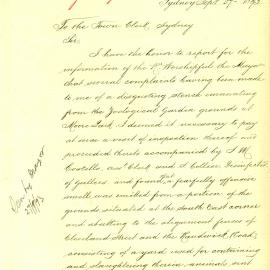 Sydney Sept 27 1893
To the Town Clerk, Sydney
Sir,
I have the honor to report for the
information of the Rt Worshipful the Mayor
that several complaints having been made
to me of a disgusting stench emanating
from the Zoological Garden grounds at
Moore Park, I deemed it necessary to pay
at once a visit of inspection thereof and
proceeded thither accompanied by J. M.
Costello, Clerk and J. Collier Inspector
of and found that a fearfully offensive
smell was emitted from a portion of the
grounds situated at the South East corner
and abutting to the alignment fences of
Cleveland Street and the Randwick Road,
consisting of a yard used for containing
and slaughtering therein animals sent